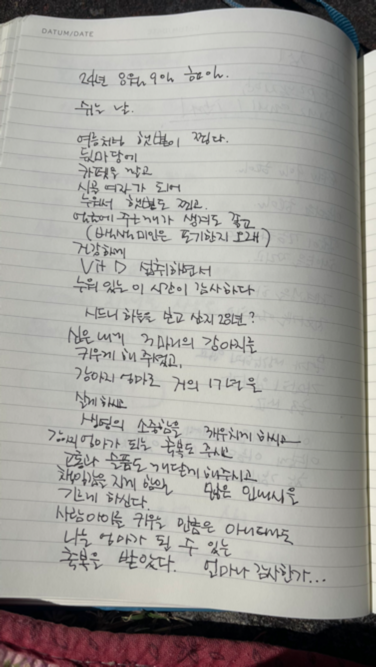 DATUM/DATE
24년 9일
쉬는 날.
여름처럼 햇볕이 쬔다.
뒷마당에
카펫을 깔고
식물 여자가 되어
누워서 햇볕도 쬐고
얼굴에 주근깨가 생겨도 좋고
(미인은 포기한지 오래)
건강하게
Vit D 섭취하면서
누워 있는 이 시간이 감사하다
시드니 하늘을 보고 산지 28년?
심은 내게 3마리의 강아지를
키우게 해 주셨고,
강아지 엄마로 거의 17년을
살게 하셨으
생명의 소중함을 깨우치게 하시고
강아지 엄마가 되는 축복도 주시고
고통과 슬픔도 깨닫게 해주시고
책임감을 지게 함의 많은 인내심을
기르게 하셨다.
사람아이를 키우는 만큼은 아니더라도
나는 엄마가 될 수 있는
축복을 받았다. 얼마나 감사한가...